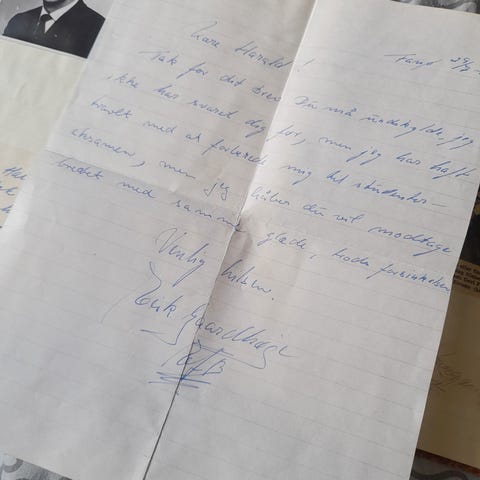 Kære Harald!
Tak for dit brev. Du må undskylde, jeg
ikke har svaret dig før, men jeg har haft
travlt med at forberede mig til studenter-
eksamen, men jeg håber du vil modtage
brevet med samme glæde, trods forsinkelsen
Venlig hilsen.
Erik Gaardhøje